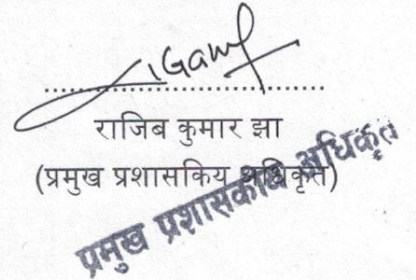 राजिब कुमार झा
(प्रमुख प्रशासकिय अधिकृत)
प्रमुख प्रशासकीय अधिकृत